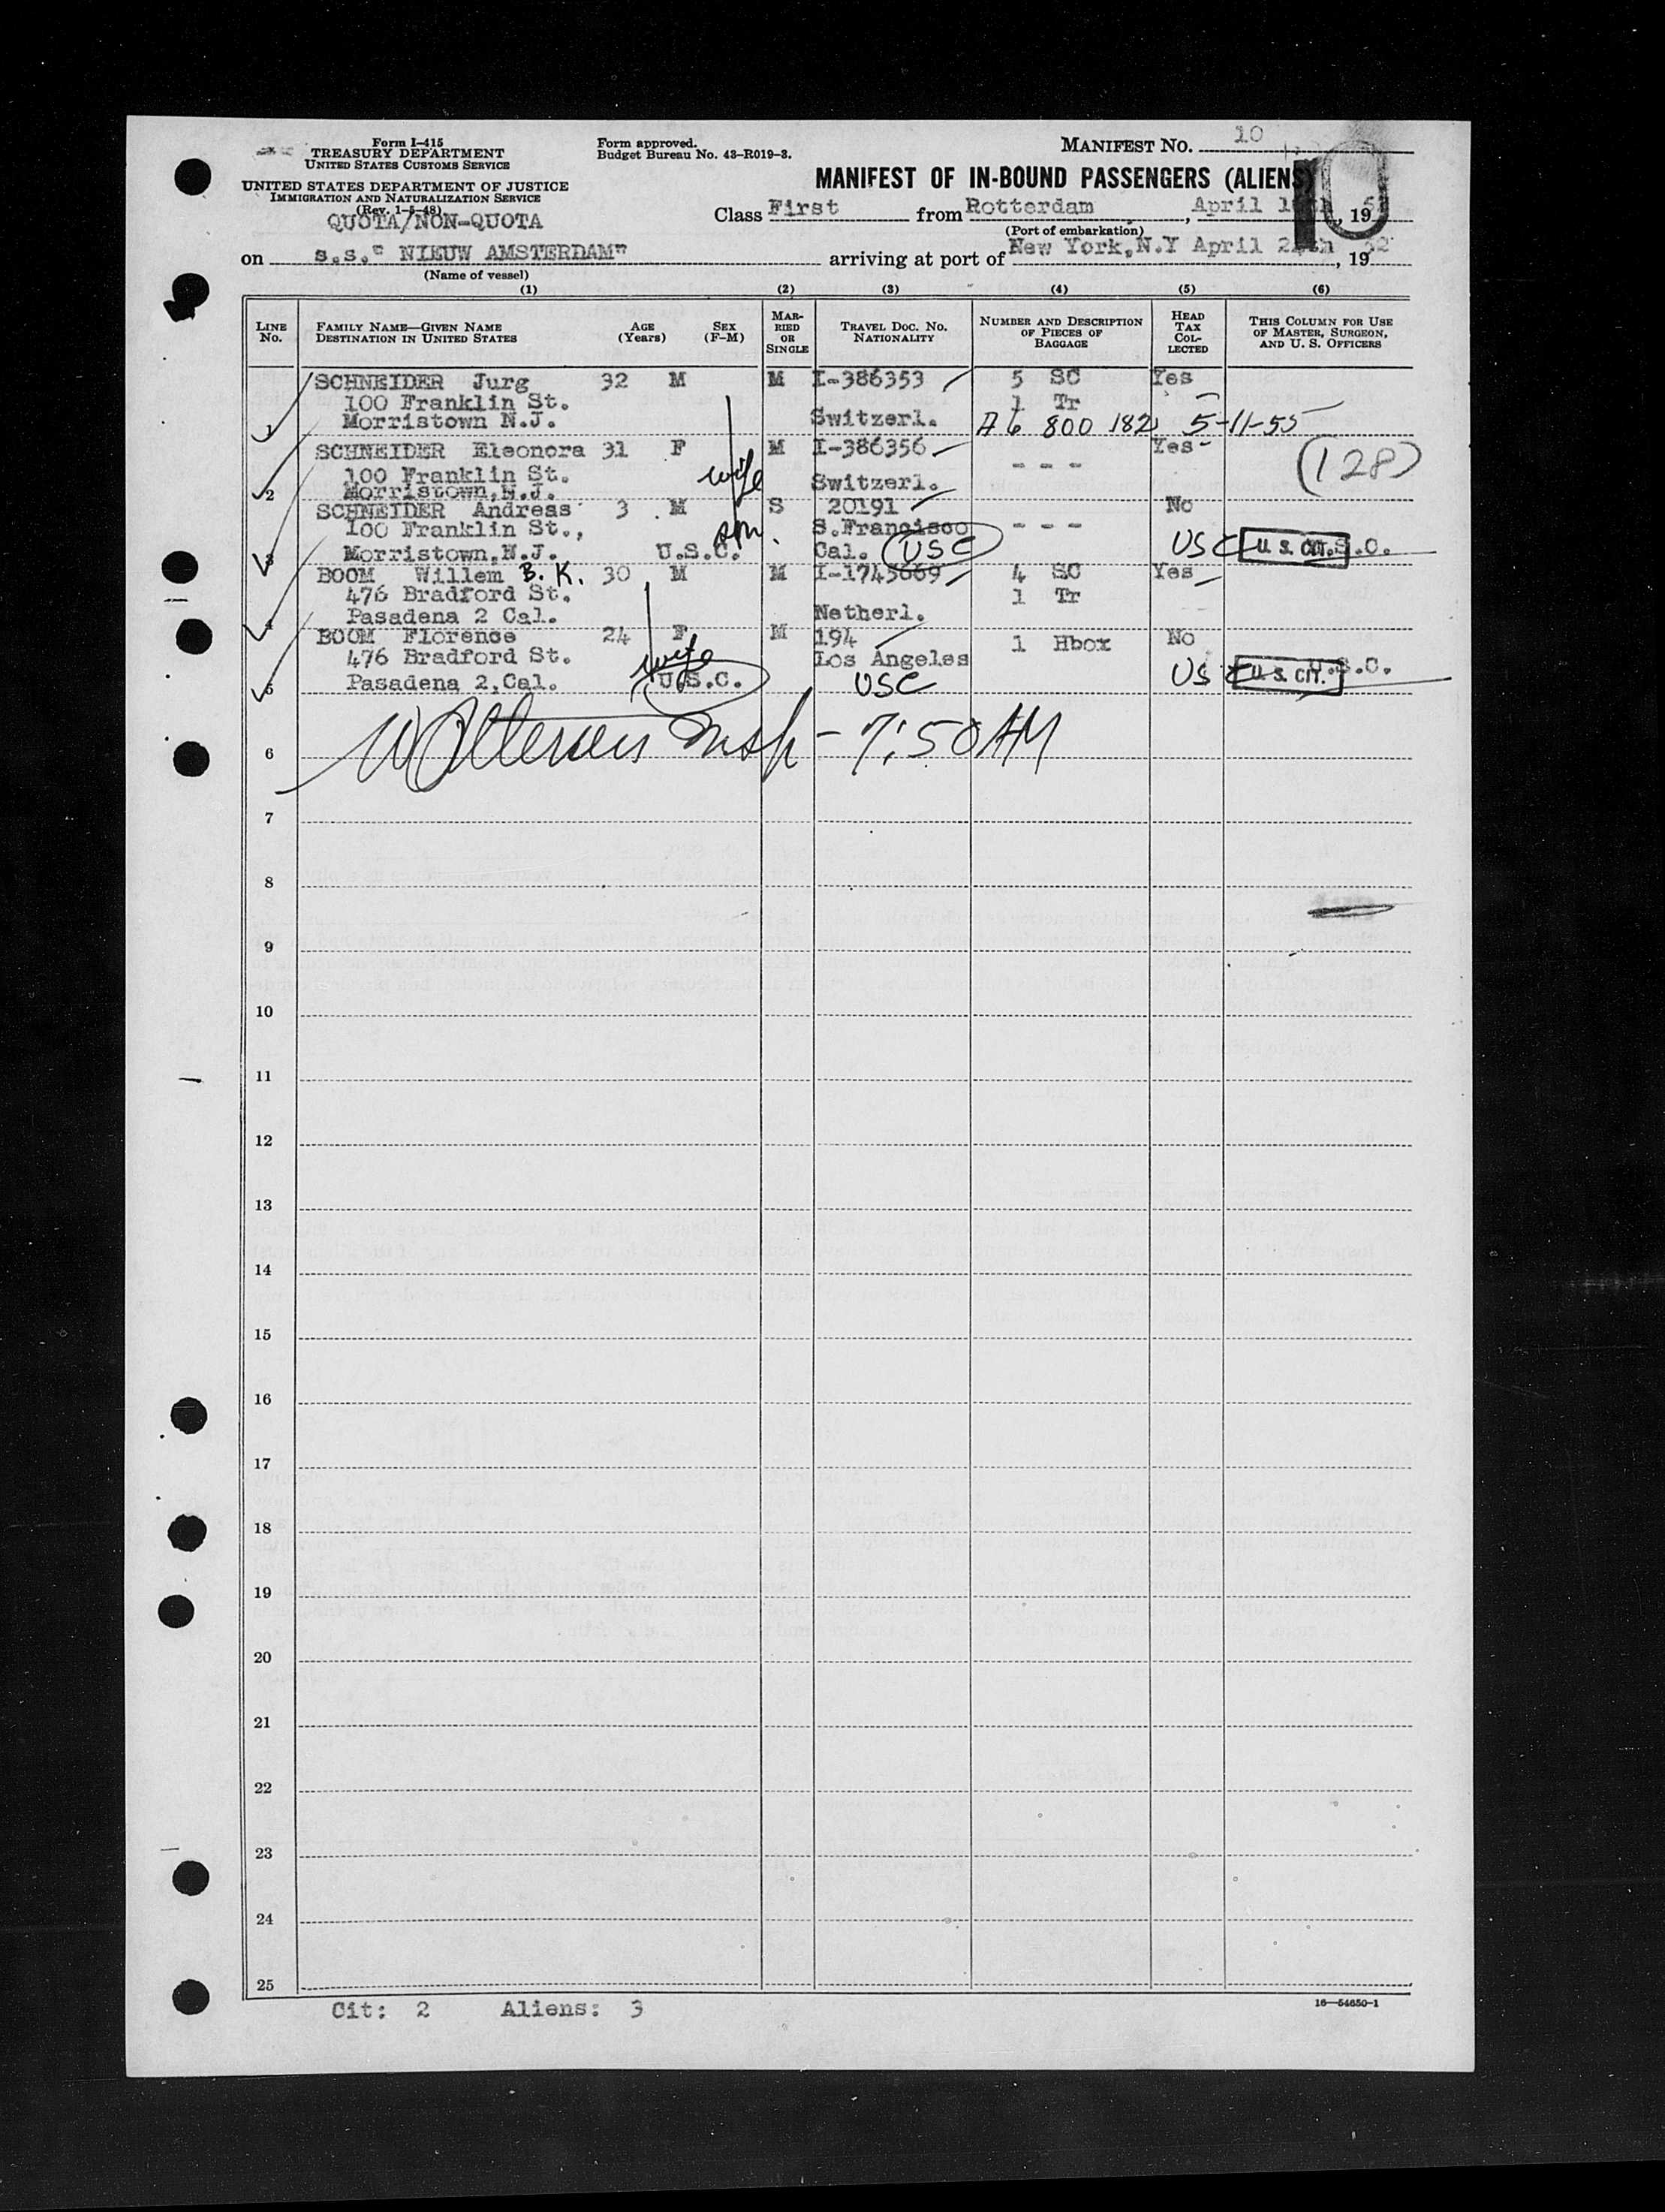 Form I-415
TREASURY DEPARTMENT
UNITED STATES CUSTOMS SERVICE
UNITED STATES DEPARTMENT OF JUSTICE
IMMIGRATION AND NATURALIZATION SERVICE
(Rev. 1-5-48)
QUOTA/NON-QUOTA
Form approved.
Budget Bureau No. 43-R019-3.
MANIFEST NO. 10
MANIFEST OF IN-BOUND PASSENGERS (ALIENS)
10
Class First from Rotterdam, April, 19
(Port of embarkation)
on s.s." NIEUW AMSTERDAM" arriving at port of New York,N.Y April, 1952
(Name of vessel)
(1) (2) (3) (4) (5) (6)
LINE No. FAMILY NAME—GIVEN NAME DESTINATION IN UNITED STATES AGE (Years) SEX (F-M) MARRIED OR SINGLE TRAVEL DOC. NO. NATIONALITY NUMBER AND DESCRIPTION OF PIECES OF BAGGAGE HEAD TAX COLLECTED THIS COLUMN FOR USE OF MASTER, SURGEON, AND U. S. OFFICERS
SCHNEIDER Jurg 32 M M I-386353 5 SC Yes
100 Franklin St. 1 Tr
1 Morristown N.J. Switzerl. A6 800 182 5-11-55
SCHNEIDER Eleonora 31 F M I-386356 Yes
100 Franklin St. wife - - - (128)
2 Morristown,N.J. Switzerl.
SCHNEIDER Andreas 3 M S 20191 No
100 Franklin St., son S.Francisco - - -
3 Morristown,N.J. U.S.C. Cal. USC USC U. S. CIT. U.S.C.
BOOM Willem B. K. 30 M M I-1745669 4 SC Yes
476 Bradford St. 1 Tr
4 Pasadena 2 Cal. Netherl.
BOOM Florence 24 F M 194 1 Hbox No
476 Bradford St. wife Los Angeles
5 Pasadena 2,Cal. U.S.C. USC USC U. S. CIT. U.S.C.
6 Insp - 7:50 AM
7
8
9
10
11
12
13
14
15
16
17
18
19
20
21
22
23
24
25
Cit: 2 Aliens: 3
16—54650-1